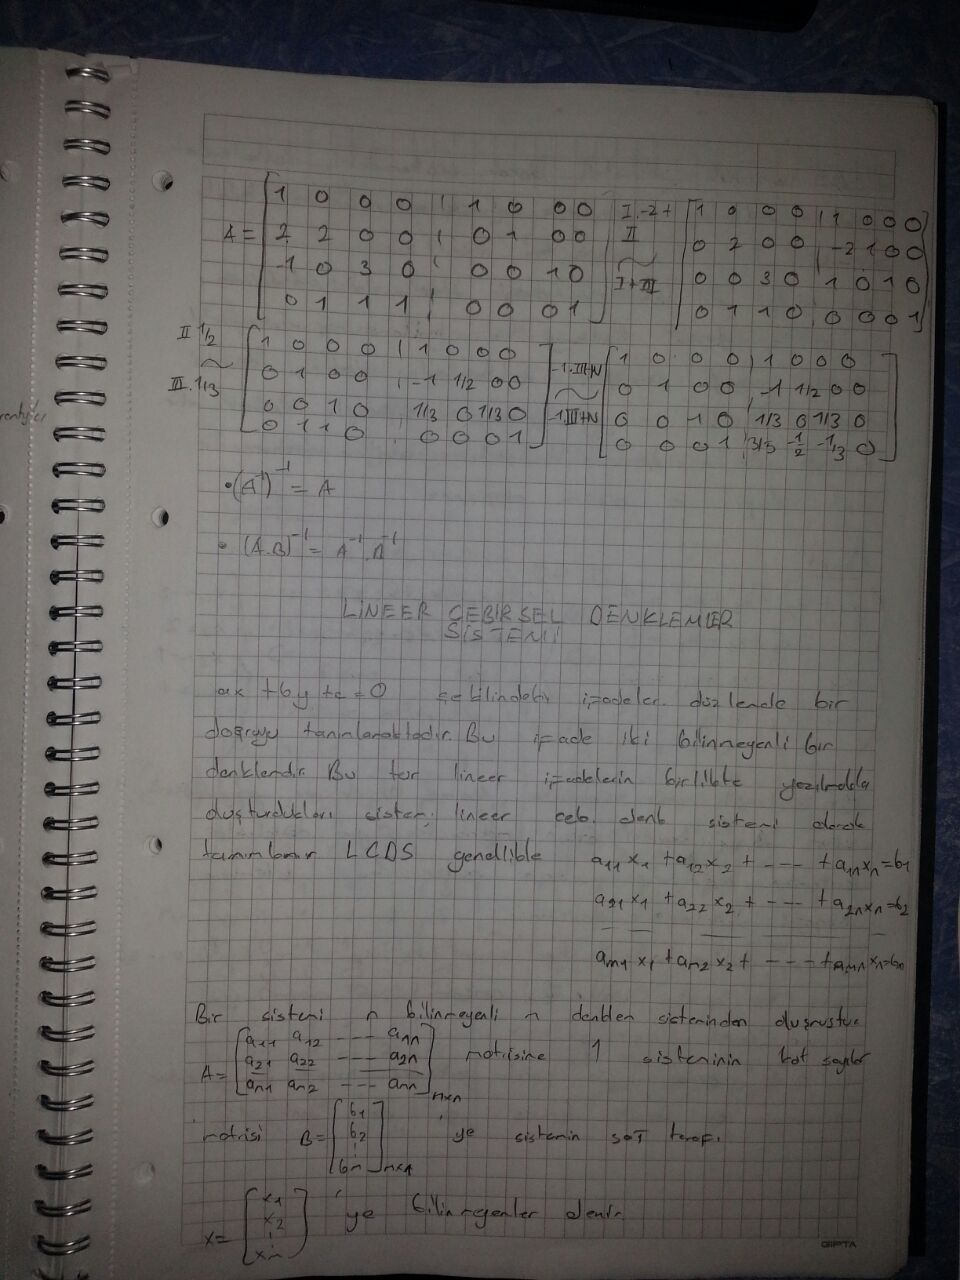 A = [ 1 0 0 0 | 1 0 0 0 ] I.-2+ [ 1 0 0 0 | 1 0 0 0 ]
2 2 0 0 | 0 1 0 0 II 0 2 0 0 | -2 1 0 0
-1 0 3 0 | 0 0 1 0 ~ I+III 0 0 3 0 | 1 0 1 0
0 1 1 1 | 0 0 0 1 0 1 1 0 | 0 0 0 1
II 1/2 [ 1 0 0 0 | 1 0 0 0 ] -1.III+IV [ 1 0 0 0 | 1 0 0 0 ]
~ 0 1 0 0 | -1 1/2 0 0 ~ 0 1 0 0 -1 1/2 0 0
III.1/3 0 0 1 0 1/3 0 1/3 0 -1III+IV 0 0 1 0 1/3 0 1/3 0
0 1 1 0 0 0 0 1 0 0 0 1 -1/2 -1/3 0
• (A⁻¹)⁻¹ = A
• (A.B)⁻¹ = A⁻¹.
LİNEER CEBİRSEL DENKLEMLER
SİSTEMİ
ax + by + c = 0 şeklindeki ifadeler düzlemde bir
doğruyu tanımlamaktadır. Bu ifade iki bilinmeyenli bir
denklemdir. Bu tür lineer ifadelerin birlikte yazılmakla
oluşturdukları sistem; lineer ceb. denk sistemi olarak
tanımlanır LCDS genellikle a₁₁x₁ + a₁₂x₂ + --- + a₁ₙxₙ=b₁
a₂₁x₁ + a₂₂x₂ + --- + a₂ₙxₙ=b₂
aₙ₁x₁ + aₙ₂x₂ + --- + aₙₙxₙ=bₙ
Bir sistemi n bilinmeyenli n denklem sisteminden oluşmuştur
A = [ a₁₁ a₁₂ --- a₁ₙ
a₂₁ a₂₂ --- a₂ₙ
aₙ₁ aₙ₂ --- aₙₙ ]ₙₓₙ matrisine 1 sisteminin kat sayılar
matrisi B = [ b₁ b₂ ⋮ bₙ ]ₙₓ₁ 'ye sistemin sağ tarafı
x = [ x₁ x₂ ⋮ xₙ ] 'ye bilinmeyenler denir.
GIPTA